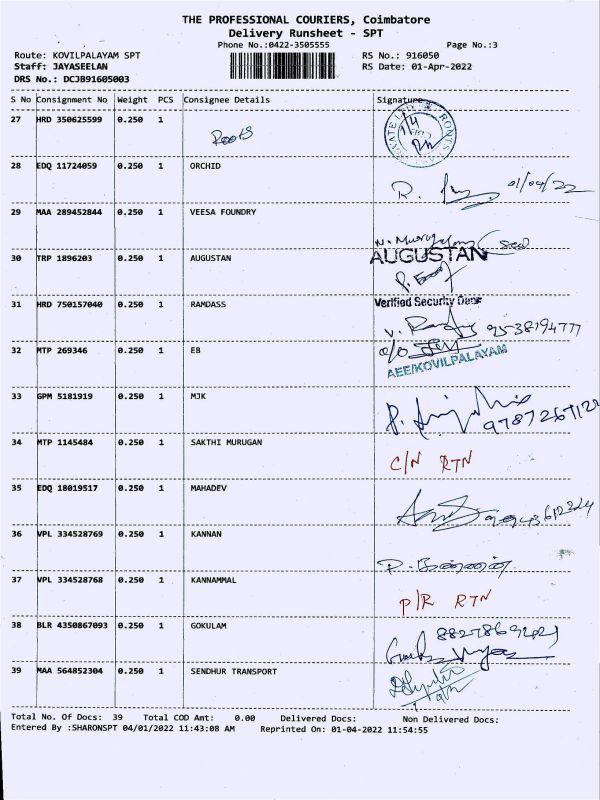 THE PROFESSIONAL COURIERS, Coimbatore
Delivery Runsheet - SPT
Phone No.:0422-3505555 Page No.:3
Route: KOVILPALAYAM SPT RS No.: 916050
Staff: JAYASEELAN RS Date: 01-Apr-2022
DRS No.: DCJB91605003
S No Consignment No Weight PCS Consignee Details Signature
27 HRD 350625599 0.250 1 Roots
28 EDQ 11724059 0.250 1 ORCHID
R. 01/04/22
29 MAA 289452844 0.250 1 VEESA FOUNDRY
30 TRP 1896203 0.250 1 AUGUSTAN AUGUSTAN
31 HRD 750157040 0.250 1 RAMDASS Verified Security Dept
9538194777
32 MTP 269346 0.250 1 EB
AEE/KOVILPALAYAM
33 GPM 5181919 0.250 1 MJK
34 MTP 1145484 0.250 1 SAKTHI MURUGAN
C/N RTN
35 EDQ 18019517 0.250 1 MAHADEV
36 VPL 334528769 0.250 1 KANNAN
37 VPL 334528768 0.250 1 KANNAMMAL
P/R RTN
38 BLR 4350867093 0.250 1 GOKULAM
39 MAA 564852304 0.250 1 SENDHUR TRANSPORT
Total No. Of Docs: 39 Total COD Amt: 0.00 Delivered Docs: Non Delivered Docs:
Entered By :SHARONSPT 04/01/2022 11:43:08 AM Reprinted On: 01-04-2022 11:54:55